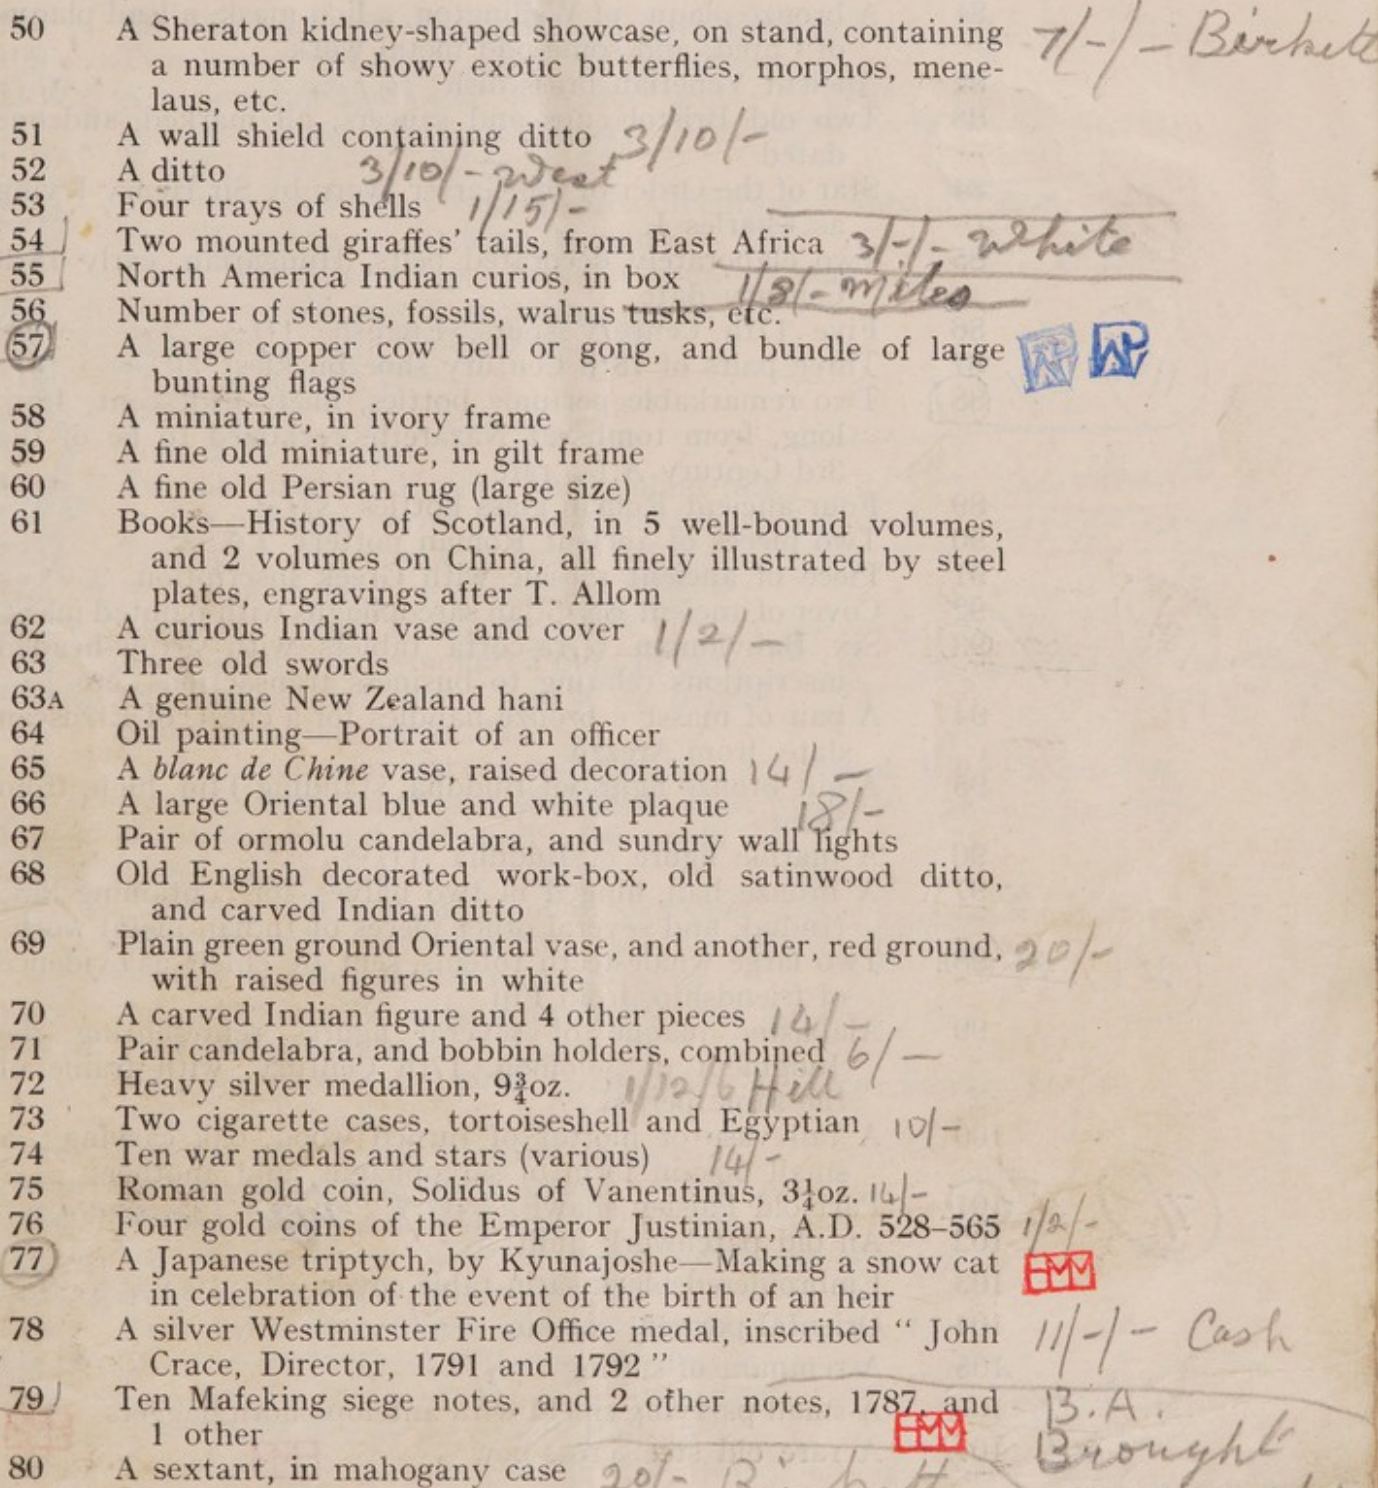 50 A Sheraton kidney-shaped showcase, on stand, containing 7/-/- Birkett
a number of showy exotic butterflies, morphos, mene-
laus, etc.
51 A wall shield containing ditto 3/10/-
52 A ditto 3/10/- West
53 Four trays of shells 1/15/-
54 Two mounted giraffes' tails, from East Africa 3/-/- White
55 North America Indian curios, in box 1/8/- Miles
56 Number of stones, fossils, walrus tusks, etc.
57 A large copper cow bell or gong, and bundle of large
bunting flags
58 A miniature, in ivory frame
59 A fine old miniature, in gilt frame
60 A fine old Persian rug (large size)
61 Books—History of Scotland, in 5 well-bound volumes,
and 2 volumes on China, all finely illustrated by steel
plates, engravings after T. Allom
62 A curious Indian vase and cover 1/2/-
63 Three old swords
63A A genuine New Zealand hani
64 Oil painting—Portrait of an officer
65 A blanc de Chine vase, raised decoration 14/-
66 A large Oriental blue and white plaque 18/-
67 Pair of ormolu candelabra, and sundry wall lights
68 Old English decorated work-box, old satinwood ditto,
and carved Indian ditto
69 Plain green ground Oriental vase, and another, red ground, 20/-
with raised figures in white
70 A carved Indian figure and 4 other pieces 14/-
71 Pair candelabra, and bobbin holders, combined 6/-
72 Heavy silver medallion, 9¾oz. 1/12/6 Hill
73 Two cigarette cases, tortoiseshell and Egyptian 10/-
74 Ten war medals and stars (various) 14/-
75 Roman gold coin, Solidus of Vanentinus, 3¼oz. 14/-
76 Four gold coins of the Emperor Justinian, A.D. 528–565 1/2/-
77 A Japanese triptych, by Kyunajoshe—Making a snow cat
in celebration of the event of the birth of an heir
78 A silver Westminster Fire Office medal, inscribed “ John 11/-/- Cash
Crace, Director, 1791 and 1792 ”
79 Ten Mafeking siege notes, and 2 other notes, 1787, and B.A.
1 other Brought
80 A sextant, in mahogany case 20/-